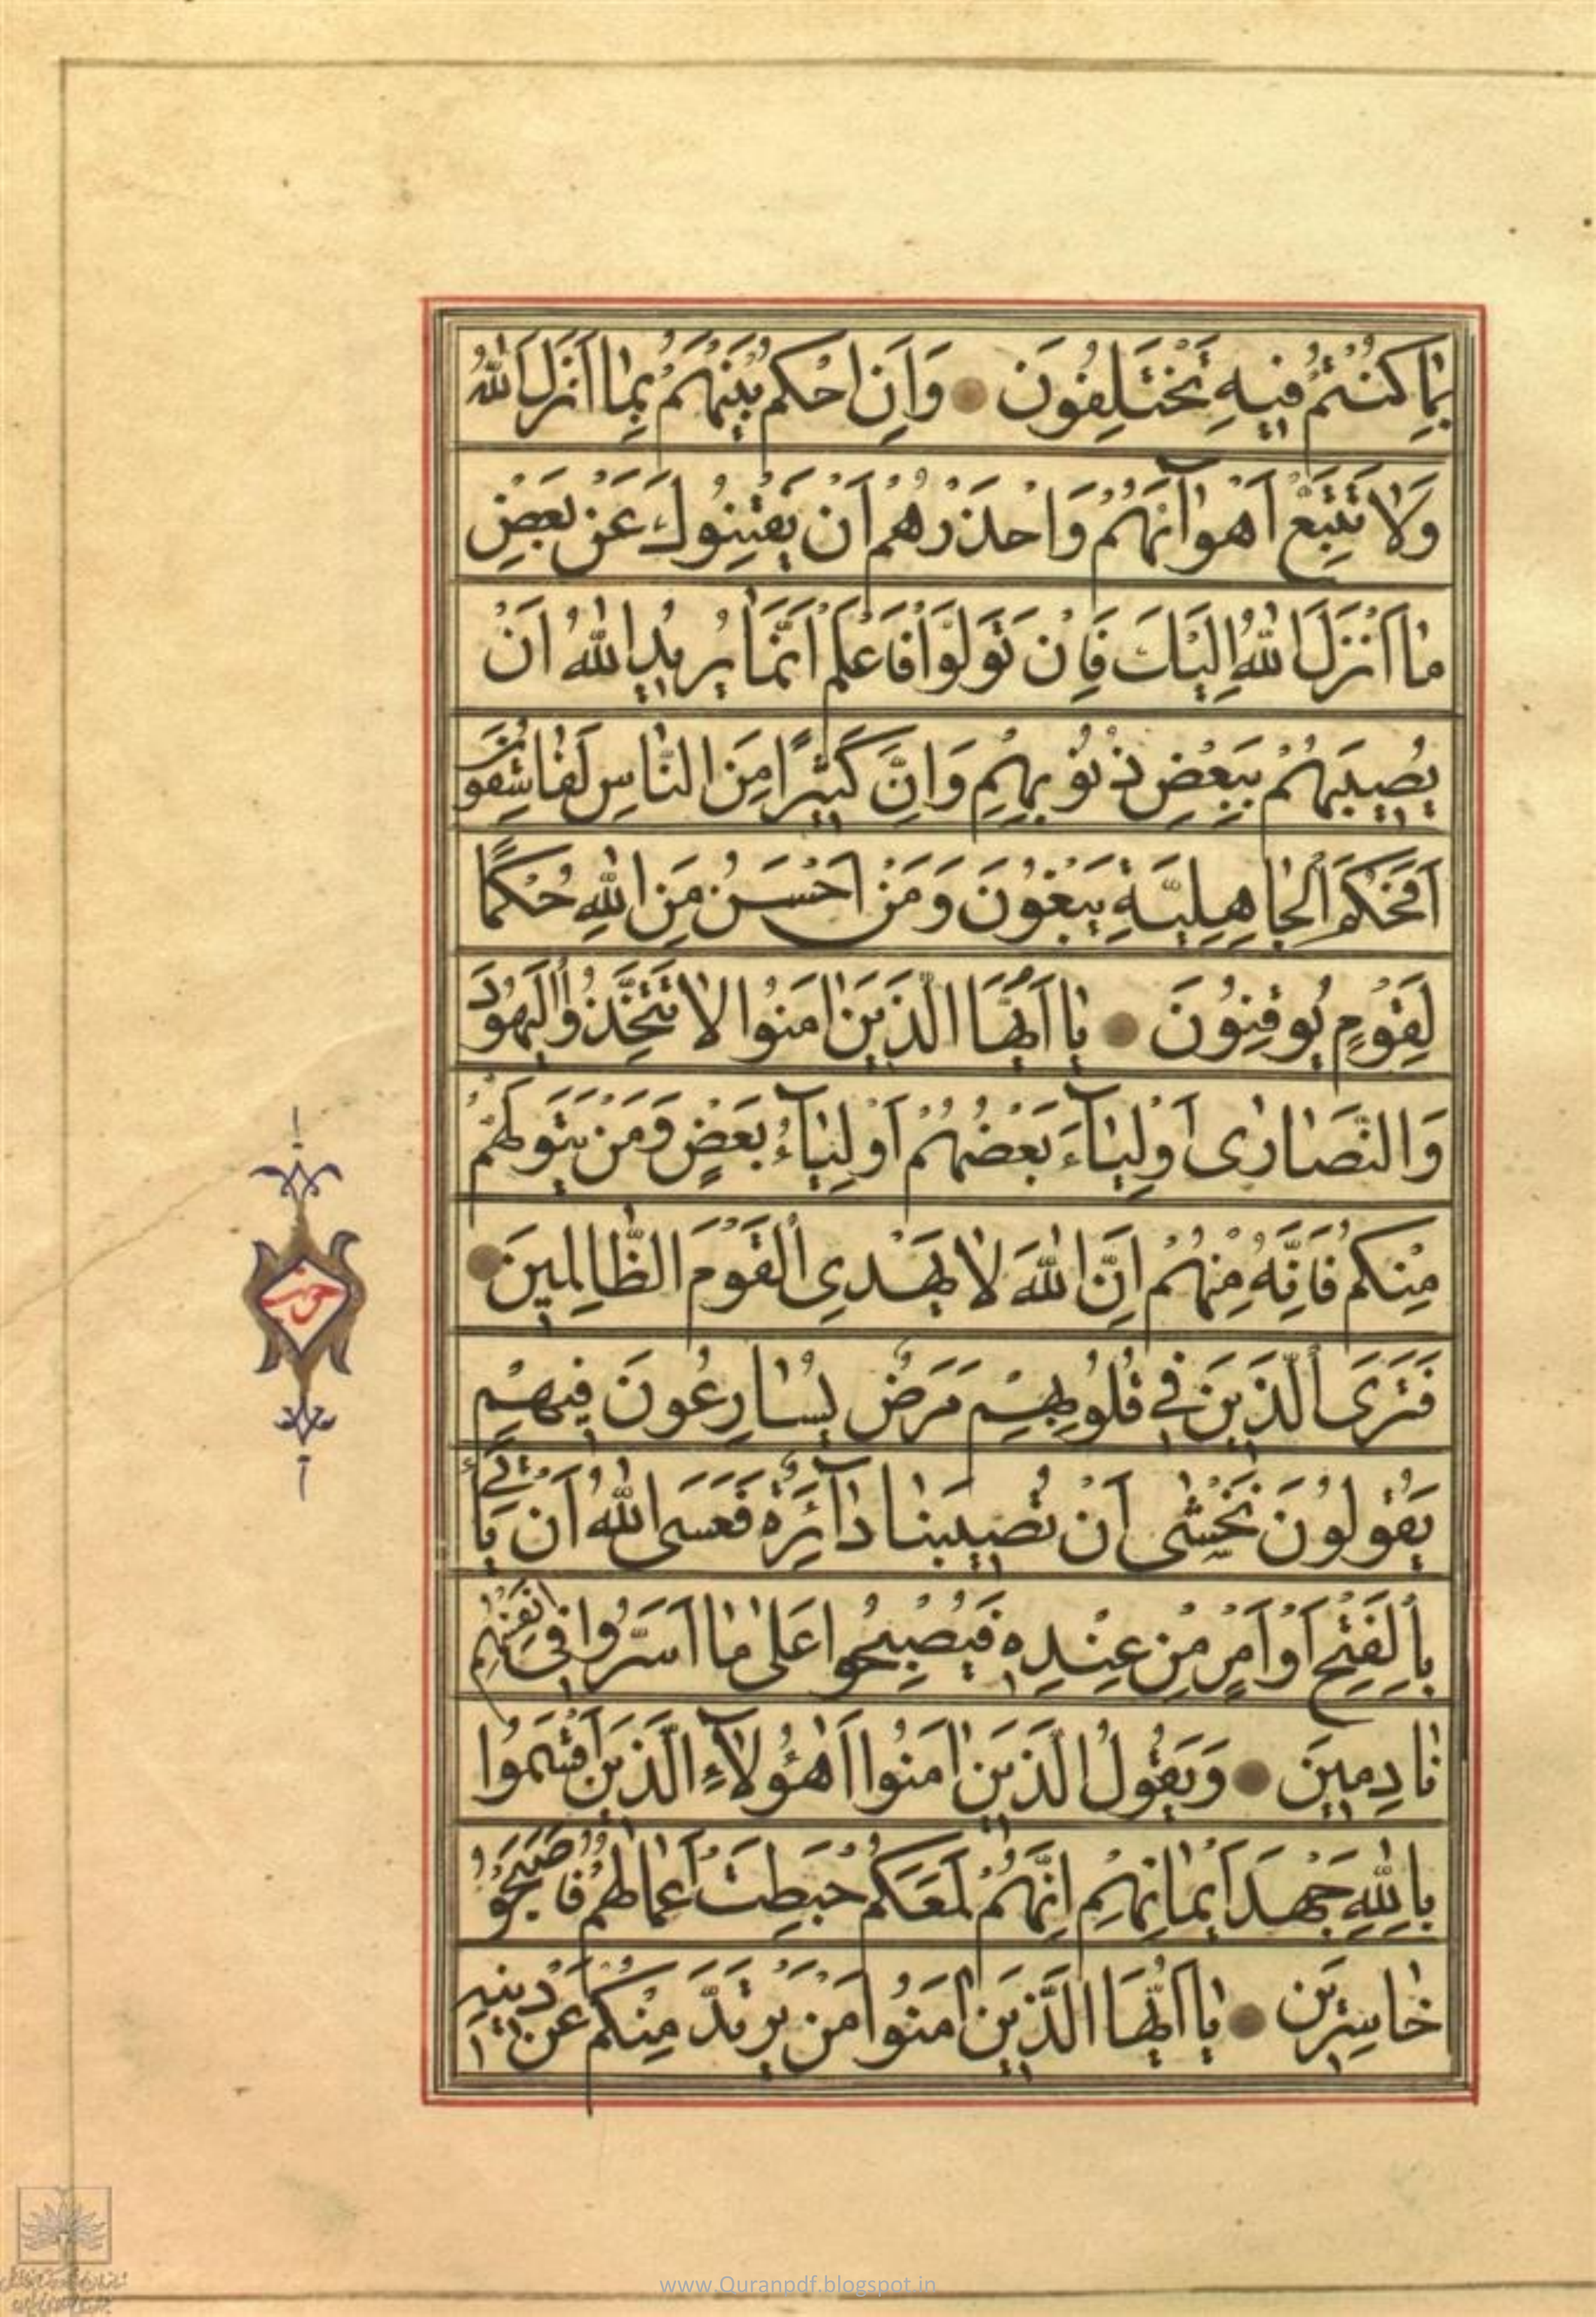 بِمَا كُنْتُمْ فِيهِ تَخْتَلِفُونَ وَاَنِ احْكُمْ بَيْنَهُمْ بِمَا اَنْزَلَ اللّٰهُ
وَلَا تَتَّبِعْ اَهْوَآئَهُمْ وَاحْذَرْهُمْ اَنْ يَفْتِنُوكَ عَنْ بَعْضِ
مَا اَنْزَلَ اللّٰهُ اِلَيْكَ فَاِنْ تَوَلَّوْا فَاعْلَمْ اَنَّمَا يُرِيدُ اللّٰهُ اَنْ
يُصِيبَهُمْ بِبَعْضِ ذُنُوبِهِمْ وَاِنَّ كَثِيرًا مِنَ النَّاسِ لَفَاسِقُونَ
اَفَحُكْمَ الْجَاهِلِيَّةِ يَبْغُونَ وَمَنْ اَحْسَنُ مِنَ اللّٰهِ حُكْمًا
لِقَوْمٍ يُوقِنُونَ يَا اَيُّهَا الَّذِينَ اٰمَنُوا لَا تَتَّخِذُوا الْيَهُودَ
وَالنَّصَارٰى اَوْلِيَآءَ بَعْضُهُمْ اَوْلِيَآءُ بَعْضٍ وَمَنْ يَتَوَلَّهُمْ
مِنْكُمْ فَاِنَّهُ مِنْهُمْ اِنَّ اللّٰهَ لَا يَهْدِى الْقَوْمَ الظَّالِمِينَ
فَتَرَى الَّذِينَ فِى قُلُوبِهِمْ مَرَضٌ يُسَارِعُونَ فِيهِمْ
يَقُولُونَ نَخْشٰى اَنْ تُصِيبَنَا دَآئِرَةٌ فَعَسَى اللّٰهُ اَنْ يَأْتِىَ
بِالْفَتْحِ اَوْ اَمْرٍ مِنْ عِنْدِهِ فَيُصْبِحُوا عَلٰى مَا اَسَرُّوا فِى اَنْفُسِهِمْ
نَادِمِينَ وَيَقُولُ الَّذِينَ اٰمَنُوا اَهٰؤُلَآءِ الَّذِينَ اَقْسَمُوا
بِاللّٰهِ جَهْدَ اَيْمَانِهِمْ اِنَّهُمْ لَمَعَكُمْ حَبِطَتْ اَعْمَالُهُمْ فَاَصْبَحُوا
خَاسِرِينَ يَا اَيُّهَا الَّذِينَ اٰمَنُوا مَنْ يَرْتَدَّ مِنْكُمْ عَنْ دِينِهِ
حزب
www.Quranpdf.blogspot.in